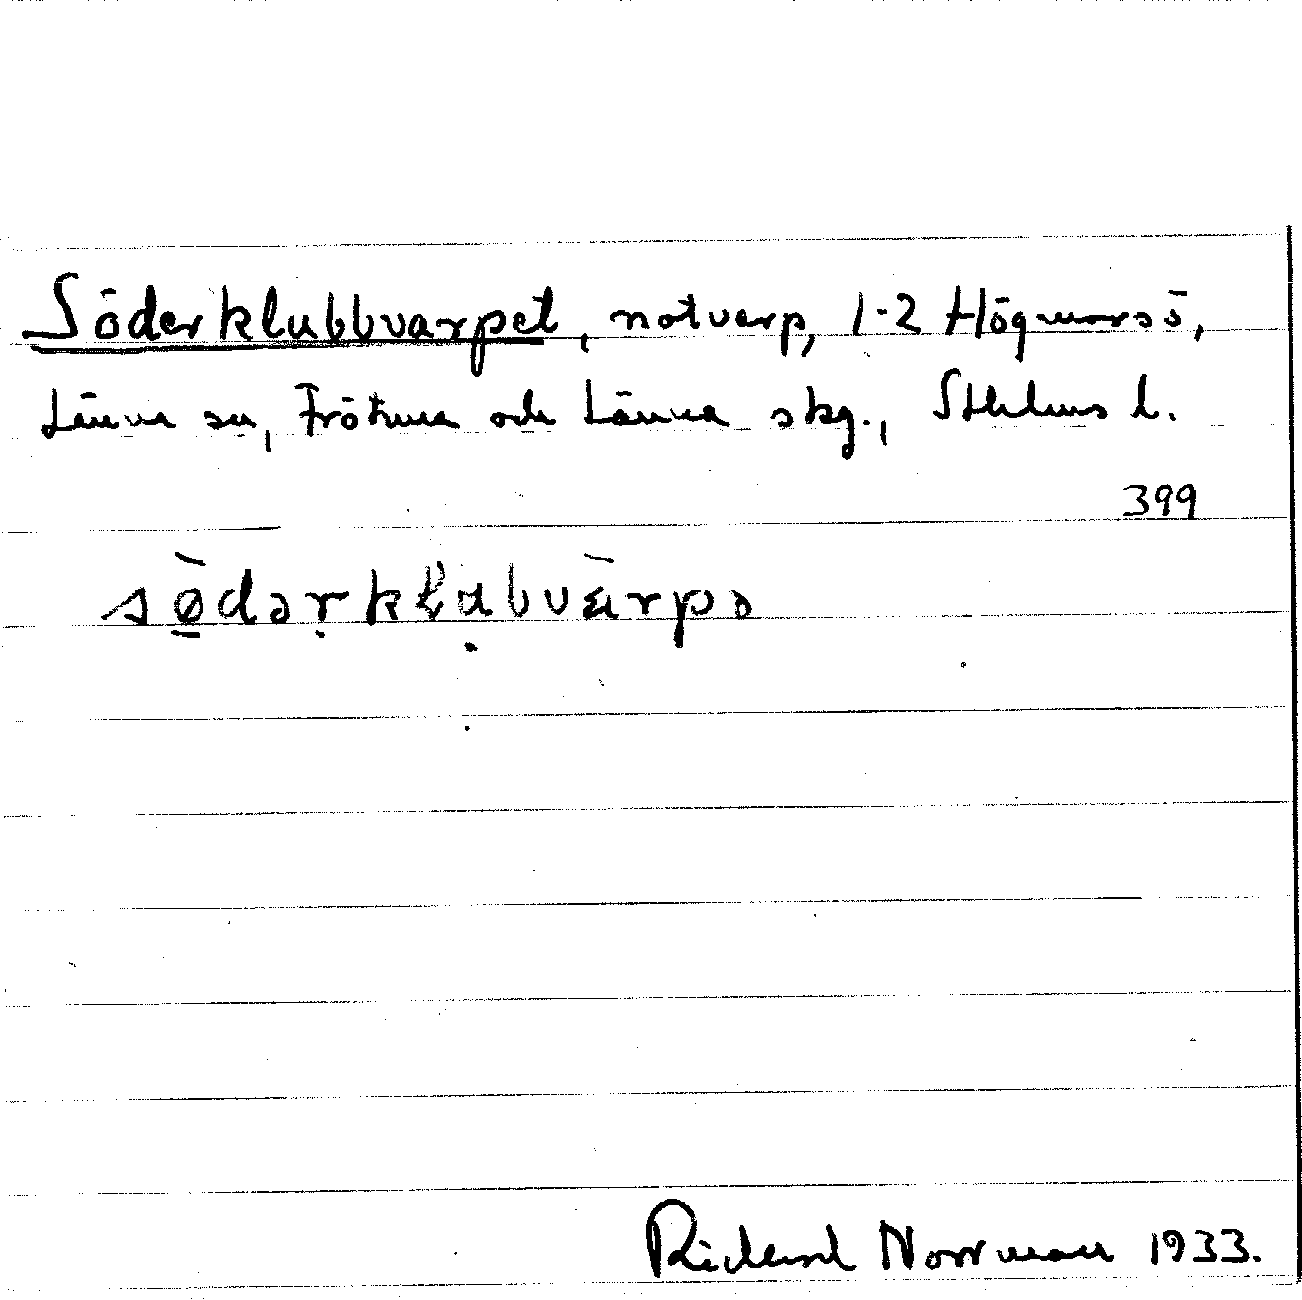 Söderklubbvarpet, notvarp, 1-2 Högmarsö,
Länna sn, Frötuna och Länna skg., Sthlms l.
399
sø̀dərkɫabvàrpə
Rickard Norrman 1933.